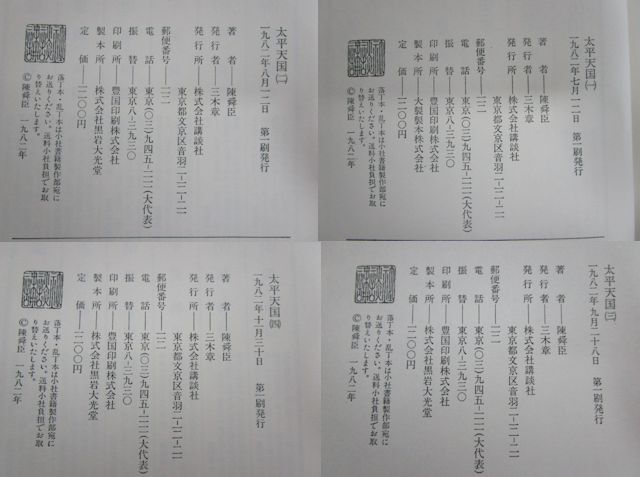 太平天国(一)
一九八二年七月一二日 第一刷発行
著者――陳舜臣
発行者――三木章
発行所――株式会社講談社
東京都文京区音羽二-一二-二一
郵便番号――一一二
電話――東京(〇三)九四五-一一一一(大代表)
振替――東京八-三九三〇
印刷所――豊国印刷株式会社
製本所――大製製本株式会社
定価――一二〇〇円
落丁本・乱丁本は小社書籍製作部宛に
お送りください。送料小社負担でお取
り替えいたします。
©陳舜臣 一九八二年
太平天国(二)
一九八二年八月一二日 第一刷発行
著者――陳舜臣
発行者――三木章
発行所――株式会社講談社
東京都文京区音羽二-一二-二一
郵便番号――一一二
電話――東京(〇三)九四五-一一一一(大代表)
振替――東京八-三九三〇
印刷所――豊国印刷株式会社
製本所――株式会社黒岩大光堂
定価――一二〇〇円
落丁本・乱丁本は小社書籍製作部宛に
お送りください。送料小社負担でお取
り替えいたします。
©陳舜臣 一九八二年
太平天国(三)
一九八二年九月二十八日 第一刷発行
著者――陳舜臣
発行者――三木章
発行所――株式会社講談社
東京都文京区音羽二-一二-二一
郵便番号――一一二
電話――東京(〇三)九四五-一一一一(大代表)
振替――東京八-三九三〇
印刷所――豊国印刷株式会社
製本所――株式会社黒岩大光堂
定価――一二〇〇円
落丁本・乱丁本は小社書籍製作部宛に
お送りください。送料小社負担でお取
り替えいたします。
©陳舜臣 一九八二年
太平天国(四)
一九八二年十月三十日 第一刷発行
著者――陳舜臣
発行者――三木章
発行所――株式会社講談社
東京都文京区音羽二-一二-二一
郵便番号――一一二
電話――東京(〇三)九四五-一一一一(大代表)
振替――東京八-三九三〇
印刷所――豊国印刷株式会社
製本所――株式会社黒岩大光堂
定価――一二〇〇円
落丁本・乱丁本は小社書籍製作部宛に
お送りください。送料小社負担でお取
り替えいたします。
©陳舜臣 一九八二年